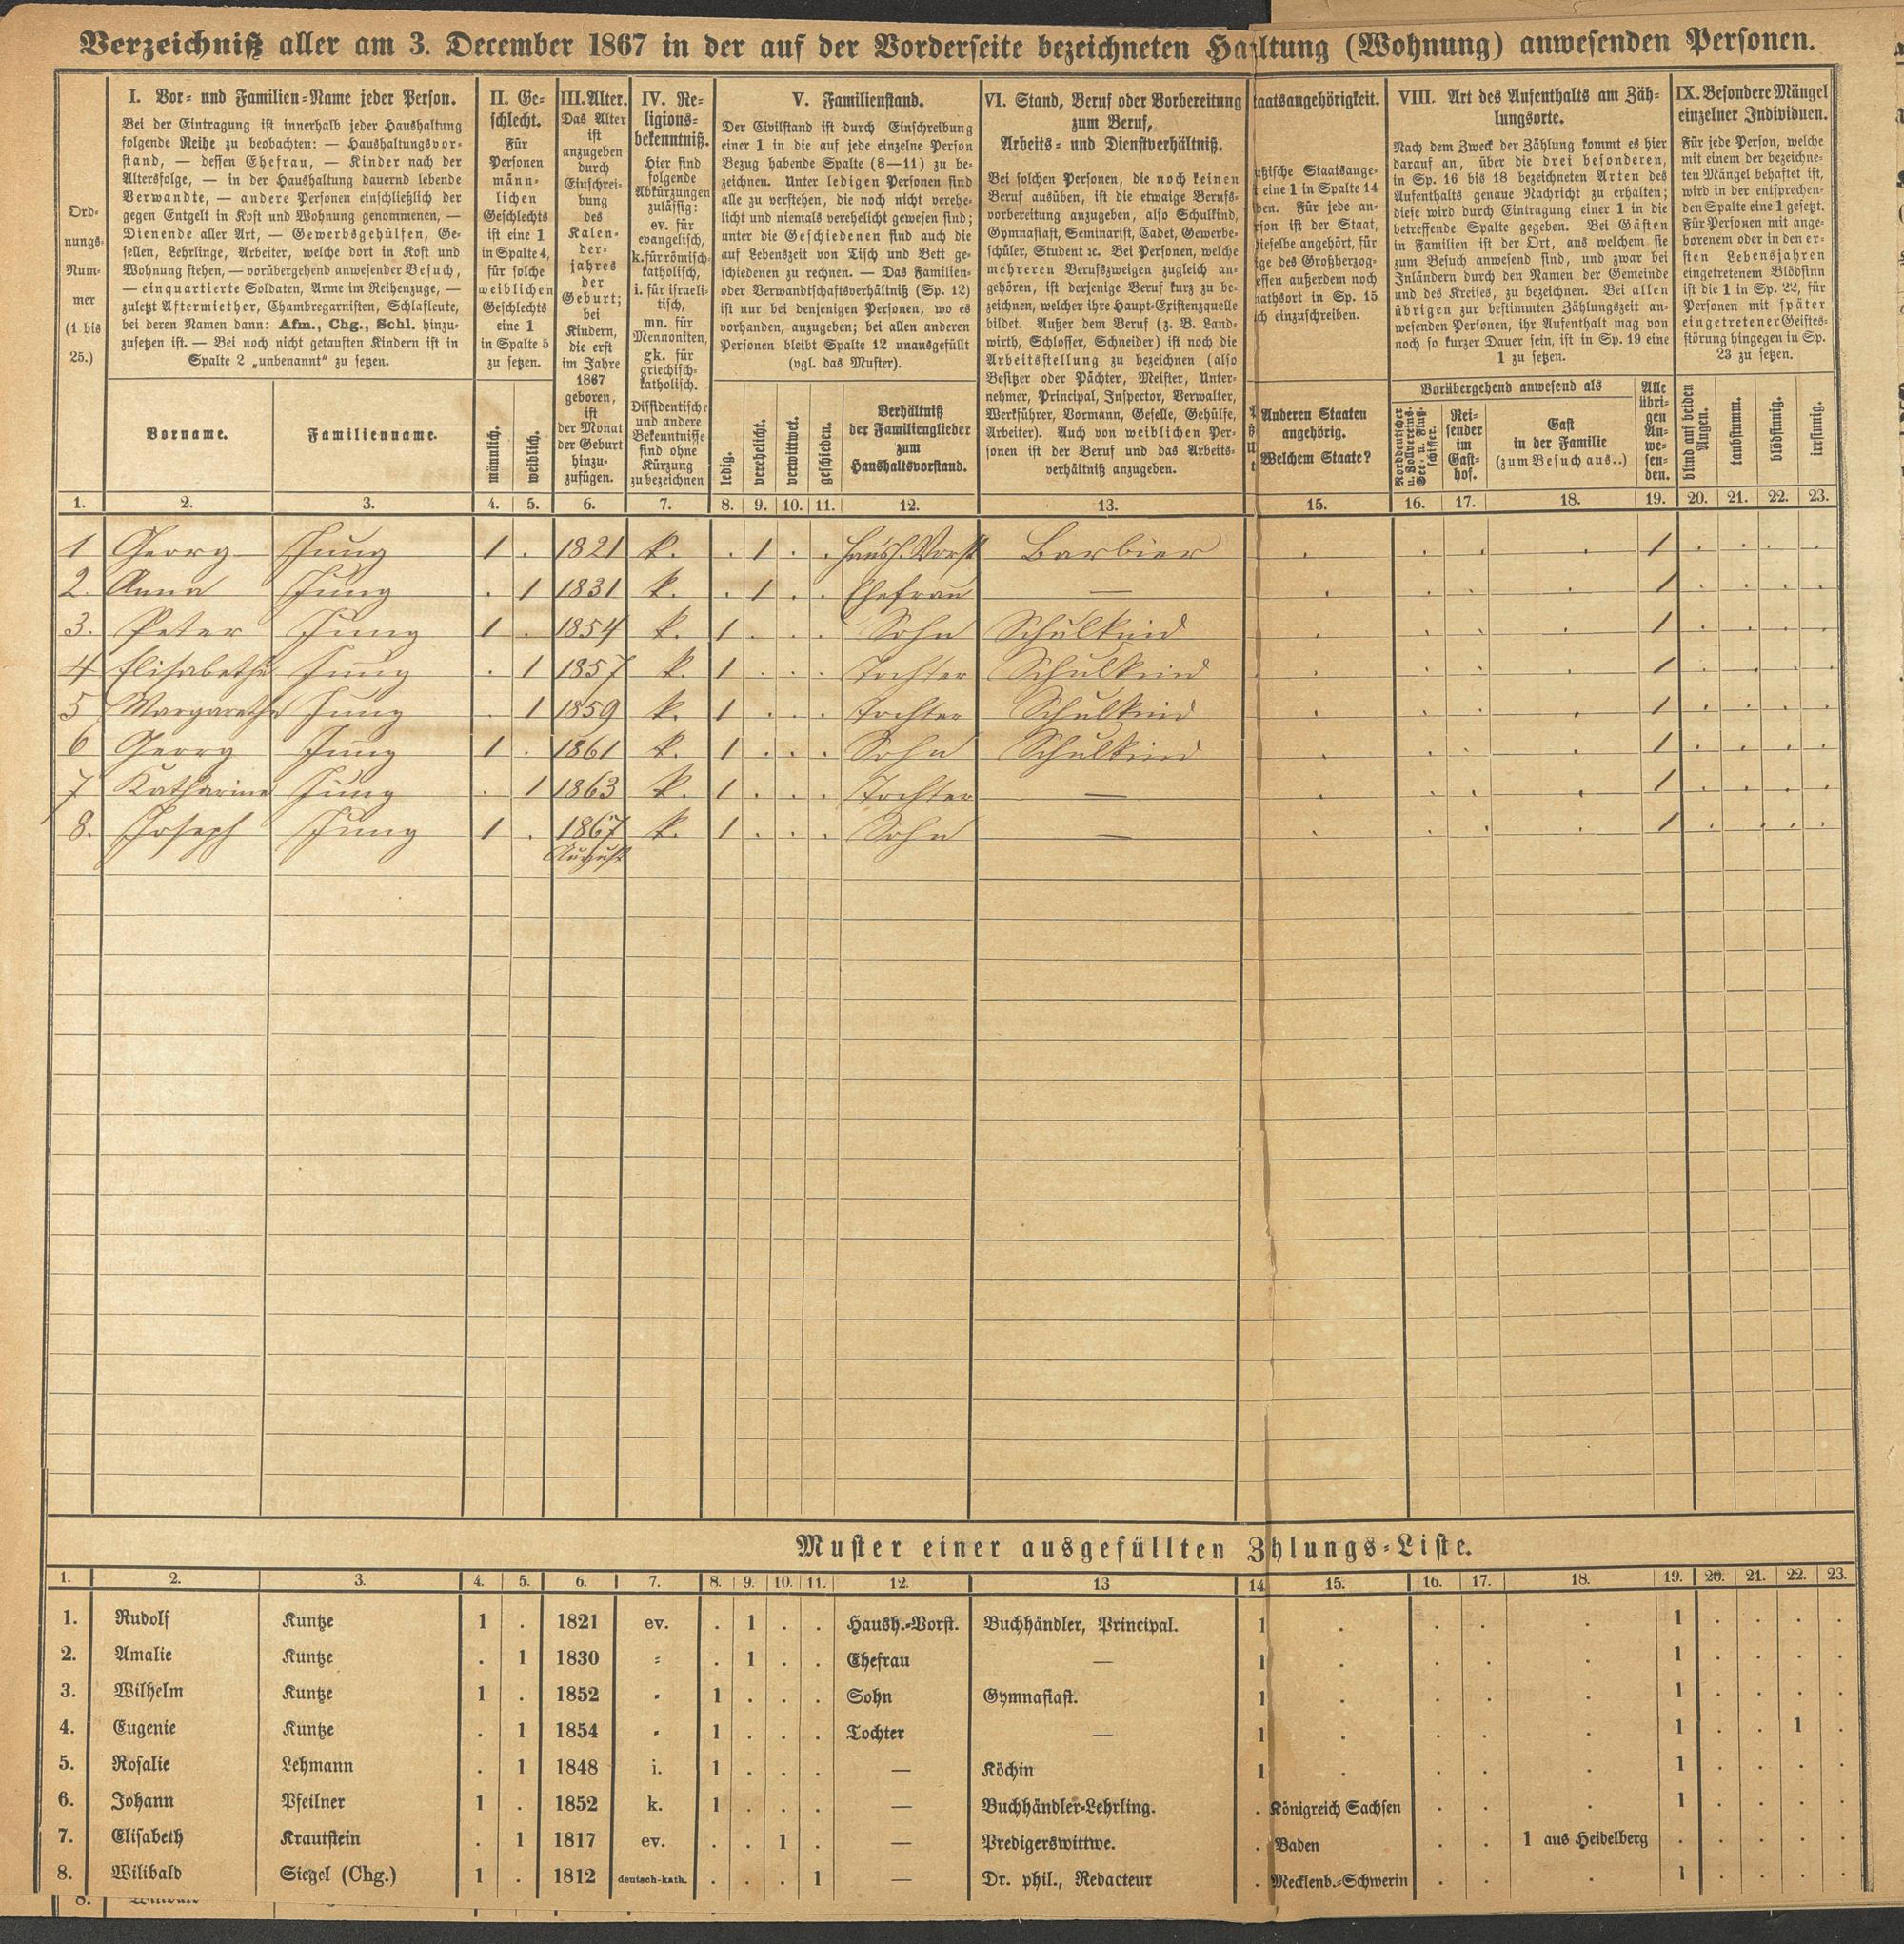 Verzeichniß aller am 3. December 1867 in der auf der Vorderseite bezeichneten Ha ltung (Wohnung) anwesenden Personen.
Ord-
nungs-
Num-
mer
(1 bis
25.)
I. Vor- und Familien-Name jeder Person.
Bei der Eintragung ist innerhalb jeder Haushaltung
folgende Reihe zu beobachten: — Haushaltungsvor-
stand, — dessen Ehefrau, — Kinder nach der
Altersfolge, — in der Haushaltung dauernd lebende
Verwandte, — andere Personen einschließlich der
gegen Entgelt in Kost und Wohnung genommenen, —
Dienende aller Art, — Gewerbsgehülfen, Ge-
sellen, Lehrlinge, Arbeiter, welche dort in Kost und
Wohnung stehen, — vorübergehend anwesender Besuch,
— einquartierte Soldaten, Arme im Reihenzuge, —
zuletzt Aftermiether, Chambregarnisten, Schlafleute,
bei deren Namen dann: Afm., Chg., Schl. hinzu-
zusetzen ist. — Bei noch nicht getauften Kindern ist in
Spalte 2 „unbenannt“ zu setzen.
Vorname.
Familienname.
II. Ge-
schlecht.
Für
Personen
männ-
lichen
Geschlechts
ist eine 1
in Spalte 4,
für solche
weiblichen
Geschlechts
eine 1
in Spalte 5
zu setzen.
männlich.
weiblich.
III. Alter.
Das Alter
ist
anzugeben
durch
Einschrei-
bung
des
Kalen-
der-
jahres
der
Geburt;
bei
Kindern,
die erst
im Jahre
1867
geboren,
ist
der Monat
der Geburt
hinzu-
zufügen.
IV. Re-
ligions-
bekenntniß.
Hier sind
folgende
Abkürzungen
zulässig:
ev. für
evangelisch,
k. für römisch-
katholisch,
i. für israeli-
tisch,
mn. für
Mennoniten,
gk. für
griechisch-
katholisch.
Dissidentische
und andere
Bekenntnisse
sind ohne
Kürzung
zu bezeichnen
V. Familienstand.
Der Civilstand ist durch Einschreibung
einer 1 in die auf jede einzelne Person
Bezug habende Spalte (8—11) zu be-
zeichnen. Unter ledigen Personen sind
alle zu verstehen, die noch nicht verehe-
licht und niemals verehelicht gewesen sind;
unter die Geschiedenen sind auch die
auf Lebenszeit von Tisch und Bett ge-
schiedenen zu rechnen. — Das Familien-
oder Verwandtschaftsverhältniß (Sp. 12)
ist nur bei denjenigen Personen, wo es
vorhanden, anzugeben; bei allen anderen
Personen bleibt Spalte 12 unausgefüllt
(vgl. das Muster).
ledig.
verehelicht.
verwittwet.
geschieden.
Verhältniß
der Familienglieder
zum
Haushaltsvorstand.
VI. Stand, Beruf oder Vorbereitung
zum Beruf,
Arbeits- und Dienstverhältniß.
Bei solchen Personen, die noch keinen
Beruf ausüben, ist die etwaige Berufs-
vorbereitung anzugeben, also Schulkind,
Gymnasiast, Seminarist, Cadet, Gewerbe-
schüler, Student ꝛc. Bei Personen, welche
mehreren Berufszweigen zugleich an-
gehören, ist derjenige Beruf kurz zu be-
zeichnen, welcher ihre Haupt-Existenzquelle
bildet. Außer dem Beruf (z. B. Land-
wirth, Schlosser, Schneider) ist noch die
Arbeitsstellung zu bezeichnen (also
Besitzer oder Pächter, Meister, Unter-
nehmer, Principal, Inspector, Verwalter,
Werkführer, Vormann, Geselle, Gehülfe,
Arbeiter). Auch von weiblichen Per-
sonen ist der Beruf und das Arbeits-
verhältniß anzugeben.
taatsangehörigkeit.
ußische Staatsange-
t eine 1 in Spalte 14
ben. Für jede an-
rson ist der Staat,
dieselbe angehört, für
ige des Großherzog-
essen außerdem noch
nathsort in Sp. 15
ich einzuschreiben.
Anderen Staaten
angehörig.
Welchem Staate?
VIII. Art des Aufenthalts am Zäh-
lungsorte.
Nach dem Zweck der Zählung kommt es hier
darauf an, über die drei besonderen,
in Sp. 16 bis 18 bezeichneten Arten des
Aufenthalts genaue Nachricht zu erhalten;
diese wird durch Eintragung einer 1 in die
betreffende Spalte gegeben. Bei Gästen
in Familien ist der Ort, aus welchem sie
zum Besuch anwesend sind, und zwar bei
Inländern durch den Namen der Gemeinde
und des Kreises, zu bezeichnen. Bei allen
übrigen zur bestimmten Zählungszeit an-
wesenden Personen, ihr Aufenthalt mag von
noch so kurzer Dauer sein, ist in Sp. 19 eine
1 zu setzen.
Vorübergehend anwesend als
Norddeutscher
u. Zollvereins-
See- u. Fluß-
schiffer.
Rei-
sender
im
Gast-
hof.
Gast
in der Familie
(zum Besuch aus..)
Alle
übri-
gen
An-
we-
sen-
den.
IX. Besondere Mängel
einzelner Individuen.
Für jede Person, welche
mit einem der bezeichne-
ten Mängel behaftet ist,
wird in der entsprechen-
den Spalte eine 1 gesetzt.
Für Personen mit ange-
borenem oder in den er-
sten Lebensjahren
eingetretenem Blödsinn
ist die 1 in Sp. 22, für
Personen mit später
eingetretener Geistes-
störung hingegen in Sp.
23 zu setzen.
blind auf beiden
Augen.
taubstumm.
blödsinnig.
irrsinnig.
1. 2. 3. 4. 5. 6. 7. 8. 9. 10. 11. 12. 13. 15. 16. 17. 18. 19. 20. 21. 22. 23.
1 Georg Jung 1 . 1821 k. . 1 . . Haush. Vorst Barbier . . . . 1 . . . .
2. Anna Jung . 1 1831 k. . 1 . . Ehefrau — . . . . 1 . . . .
3. Peter Jung 1 . 1854 k. 1 . . . Sohn Schulkind . . . . 1 . . . .
4 Elisabetha Jung . 1 1857 k. 1 . . . Tochter Schulkind . . . . 1 . . . .
5 Margaretha Jung . 1 1859 k. 1 . . . Tochter Schulkind . . . . 1 . . . .
6 Georg Jung 1 . 1861 k. 1 . . . Sohn Schulkind . . . . 1 . . . .
7 Katharina Jung . 1 1863 k. 1 . . . Tochter — . . . . 1 . . . .
8. Joseph Jung 1 . 1867 k. 1 . . . Sohn — . . . . 1 . . . .
August
Muster einer ausgefüllten Z hlungs-Liste.
1. 2. 3. 4. 5. 6. 7. 8. 9. 10. 11. 12. 13 14 15. 16. 17. 18. 19. 20. 21. 22. 23.
1. Rudolf Kuntze 1 . 1821 ev. . 1 . . Haush.-Vorst. Buchhändler, Principal. 1 . . . . 1 . . . .
2. Amalie Kuntze . 1 1830 = . 1 . . Ehefrau — 1 . . . . 1 . . . .
3. Wilhelm Kuntze 1 . 1852 " 1 . . . Sohn Gymnasiast. 1 . . . . 1 . . . .
4. Eugenie Kuntze . 1 1854 " 1 . . . Tochter — 1 . . . . 1 . . 1 .
5. Rosalie Lehmann . 1 1848 i. 1 . . . — Köchin 1 . . . . 1 . . . .
6. Johann Pfeilner 1 . 1852 k. 1 . . . — Buchhändler-Lehrling. . Königreich Sachsen . . . 1 . . . .
7. Elisabeth Krautstein . 1 1817 ev. . . 1 . — Predigerswittwe. . Baden . . 1 aus Heidelberg . . . . .
8. Wilibald Siegel (Chg.) 1 . 1812 deutsch-kath. . . . 1 — Dr. phil., Redacteur . Mecklenb.-Schwerin . . . 1 . . . .